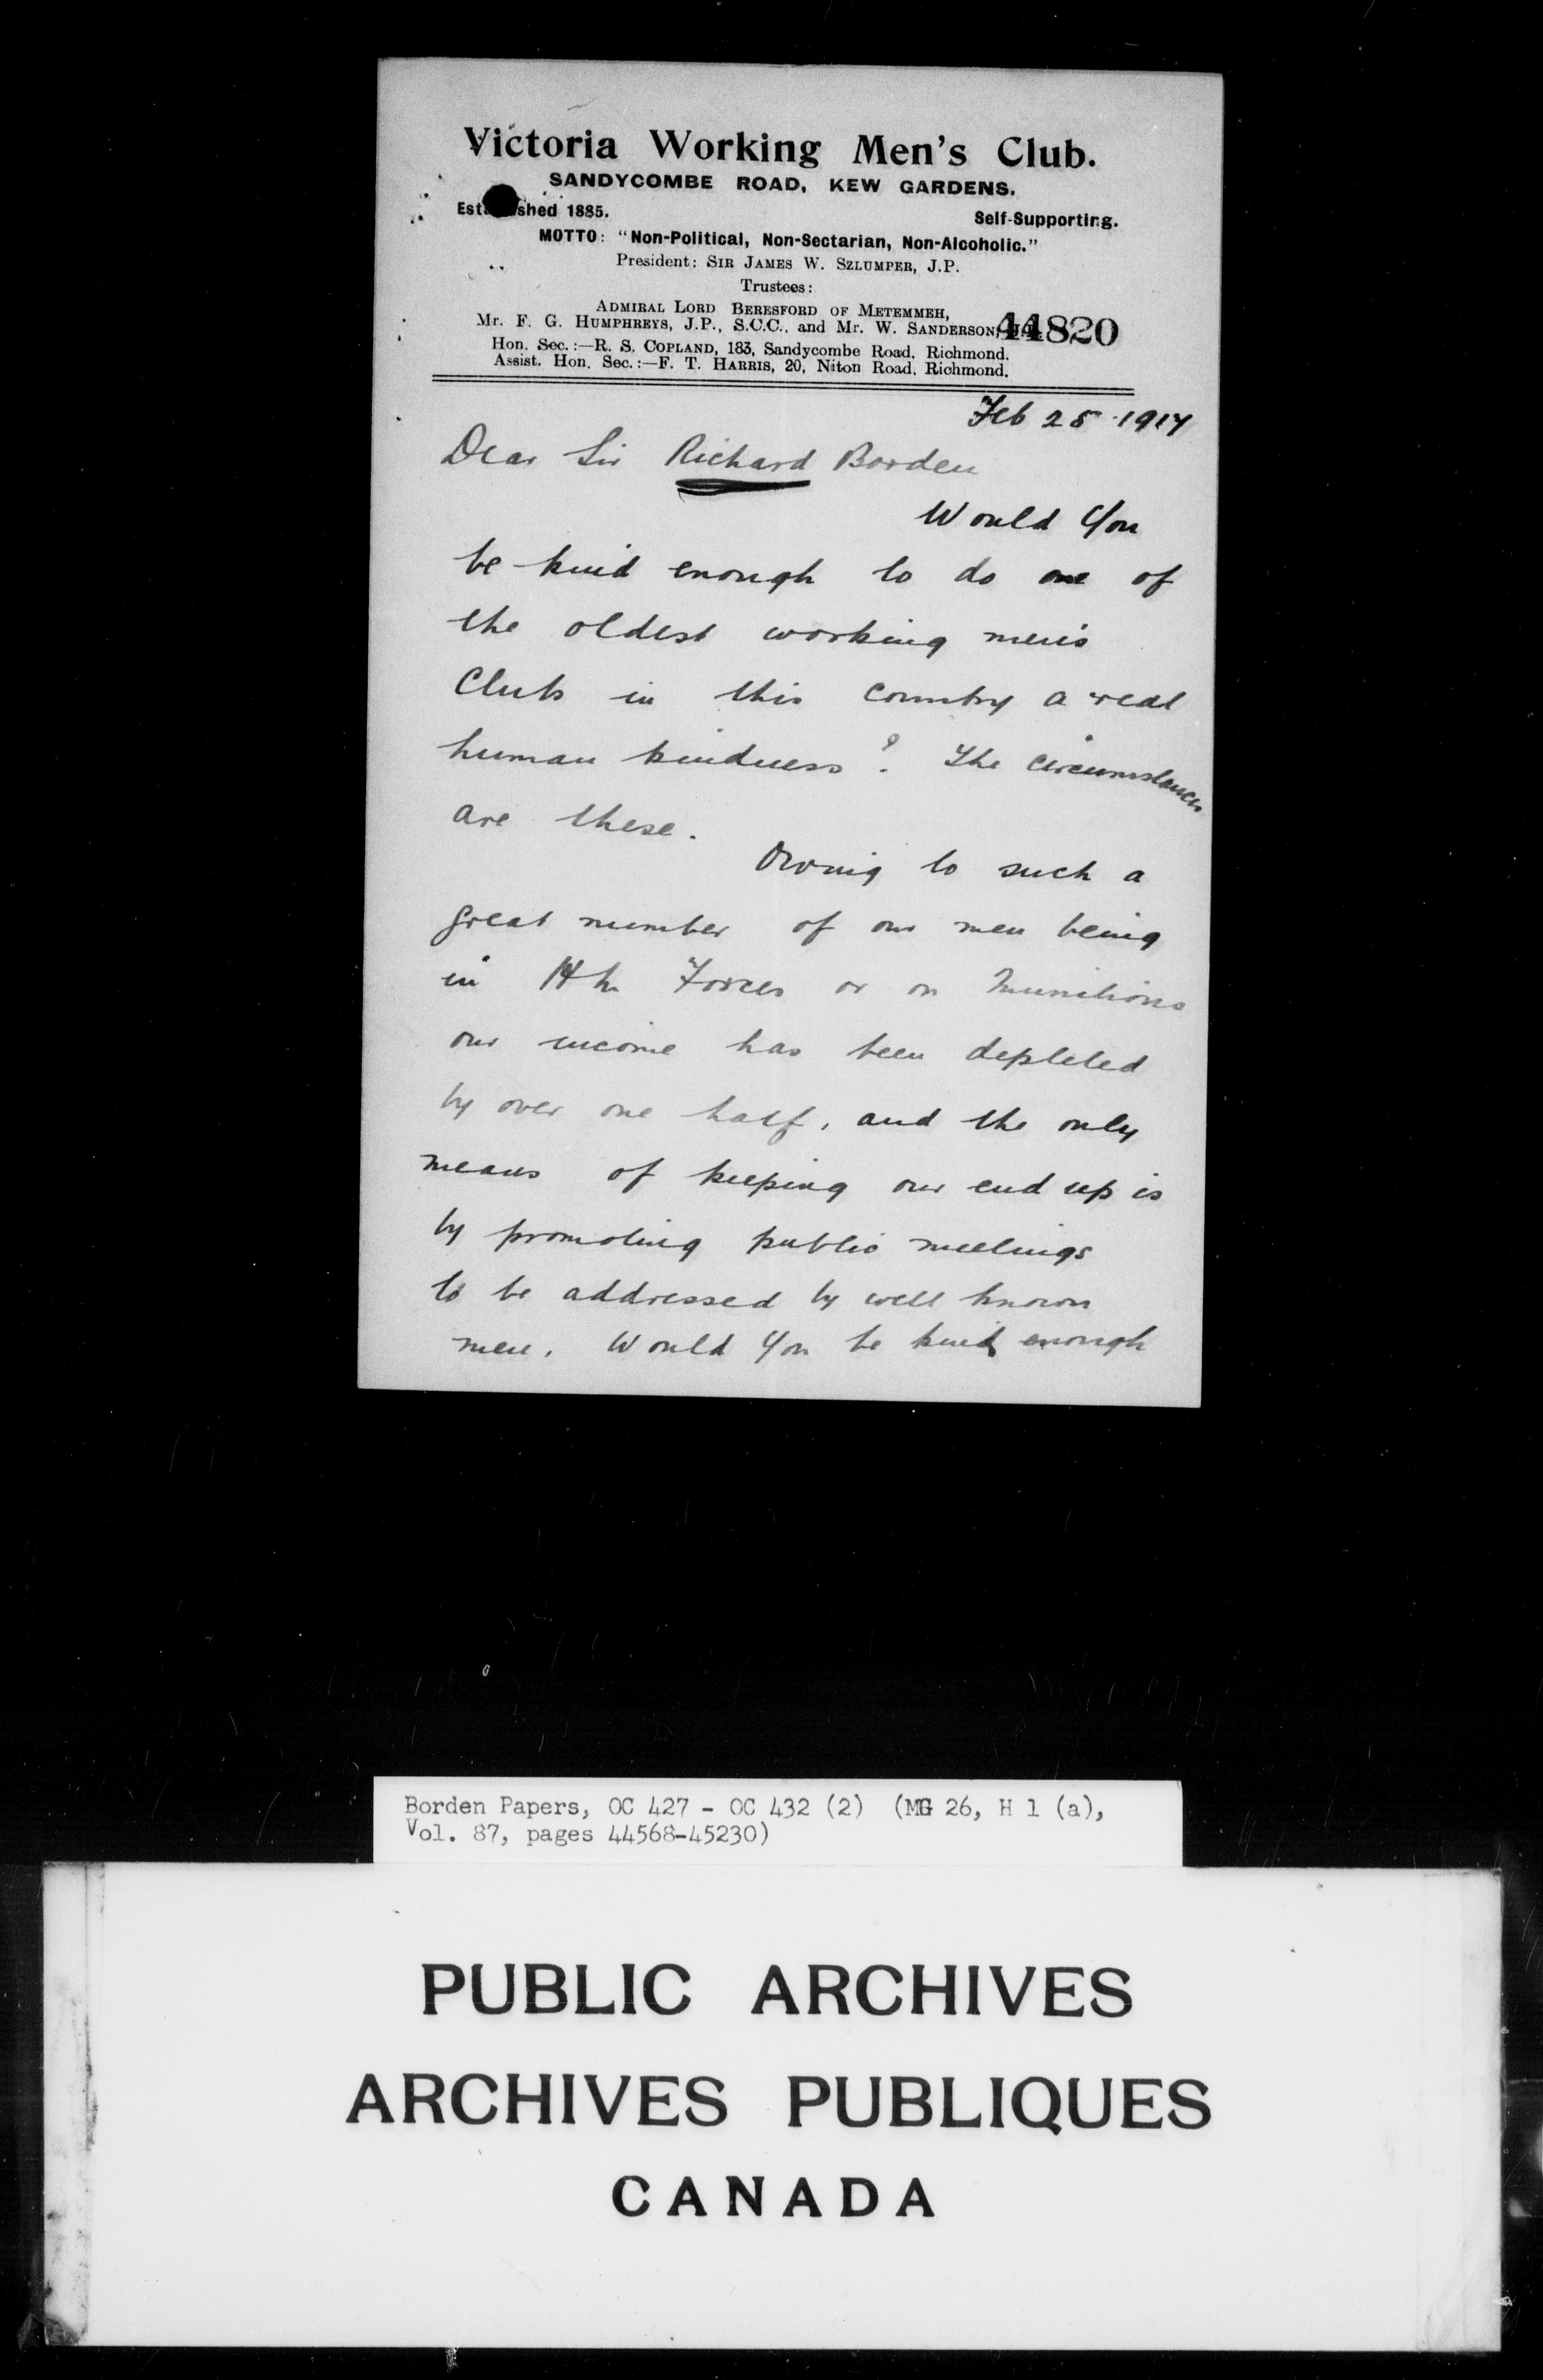 Victoria Working Men's Club.
SANDYCOMBE ROAD, KEW GARDENS.
Established 1885.
Self-Supporting.
MOTTO: "Non-Political, Non-Sectarian, Non-Alcoholic."
President: SIR JAMES W. SZLUMPER, J.P.
Trustees:
ADMIRAL LORD BERESFORD OF METEMMEH,
Mr. F. G. HUMPHREYS, J.P., S.C.C., and Mr. W. SANDERSON, J.P.
44820
Hon. Sec.:—R. S. COPLAND, 183, Sandycombe Road, Richmond.
Assist. Hon. Sec.:—F. T. HARRIS, 20, Niton Road, Richmond.
Feb 25 1917
Dear Sir Richard Borden
Would You
be kind enough to do one of
the oldest working men's
Clubs in this Country a real
human kindness? The Circumstances
are these.
Owing to such a
great number of our men being
in H Forces or on Munitions
our income has been depleted
by over one half, and the only
means of keeping our end up is
by promoting public meetings
to be addressed by well known
men. Would You be kind enough
Borden Papers, OC 427 - OC 432 (2) (MG 26, H 1 (a),
Vol. 87, pages 44568-45230)
PUBLIC ARCHIVES
ARCHIVES PUBLIQUES
CANADA